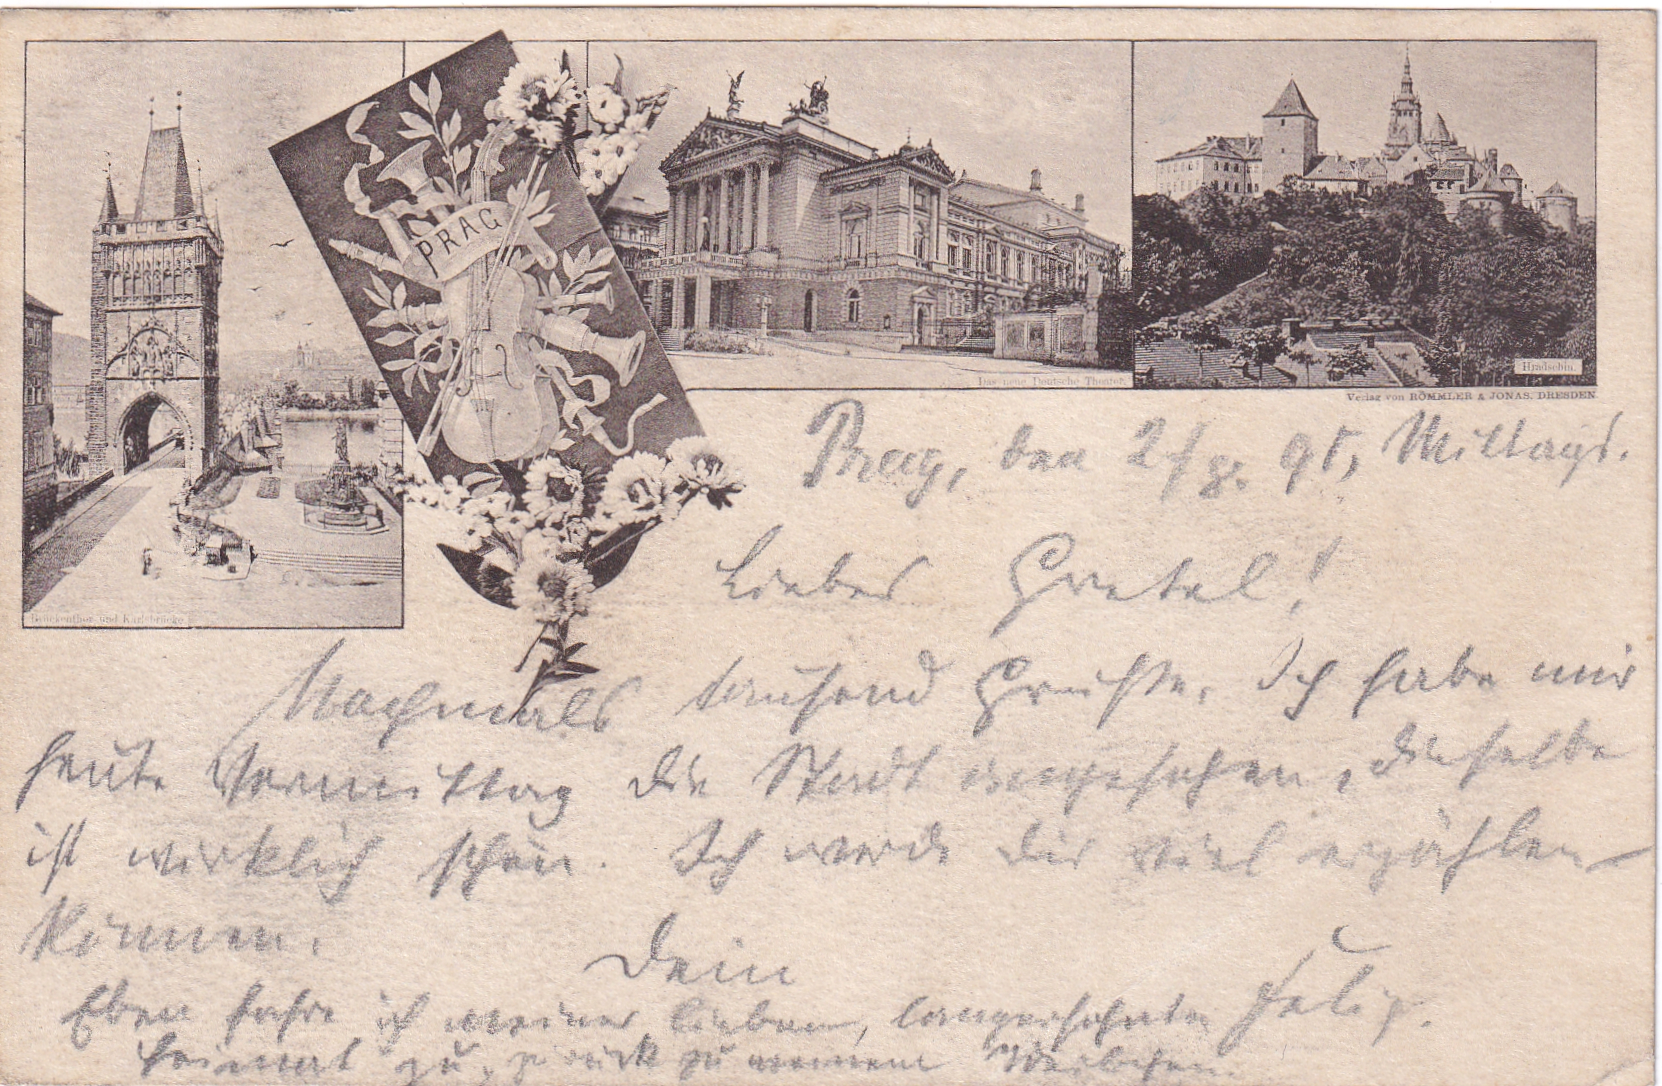 PRAG
Das neue Deutsche Theater.
Hradschin.
Verlag von RÖMMLER & JONAS, DRESDEN
Brückenthor und Karlsbrücke
Prag, den 2/8. 95, Mittags.
Liebes Gretel!
Nochmals tausend Grüsse. Ich habe mir
heute Vormittag die Stadt angesehen, dieselbe
ist wirklich schön. Ich werde dir viel erzählen
können.
Dein
Felix.
Eben fahre ich meiner lieben, langersehnten
Heimat zu, zurück zu meinem Weibchen.